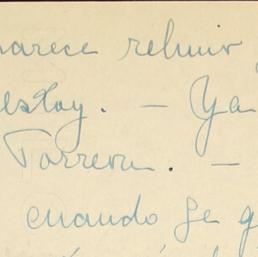 parece rehuir
estoy. — Ya
Torreón. —
cuando se q